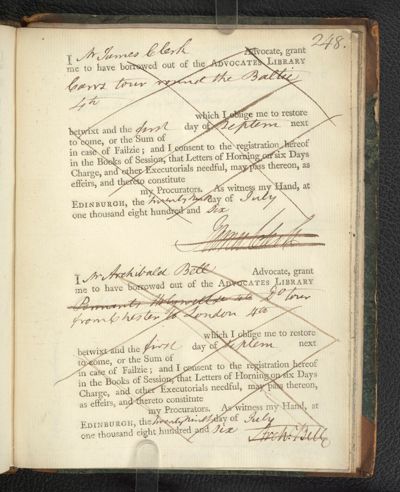 248.
I Mr James Clerk Advocate, grant
me to have borrowed out of the ADVOCATES LIBRARY
Carrs tour round the Baltic
4to
which I oblige me to restore
betwixt and the first day of Septem next
to come, or the Sum of
in case of Failzie; and I consent to the registration hereof
in the Books of Session, that Letters of Horning on six Days
Charge, and other Executorials needful, may pass thereon, as
effeirs, and thereto constitute
my Procurators. As witness my Hand, at
EDINBURGH, the day of July
one thousand eight hundred and Six
James Clerk
I Mr Archibald Bell Advocate, grant
me to have borrowed out of the ADVOCATES LIBRARY
Pennants Do tour
from Chester to London 4to
which I oblige me to restore
betwixt and the first day of Septem next
to come, or the Sum of
in case of Failzie; and I consent to the registration hereof
in the Books of Session, that Letters of Horning on six Days
Charge, and other Executorials needful, may pass thereon,
as effeirs, and thereto constitute
my Procurators. As witness my Hand, at
EDINBURGH, the twenty ninth day of July
one thousand eight hundred and Six
Archd Bell